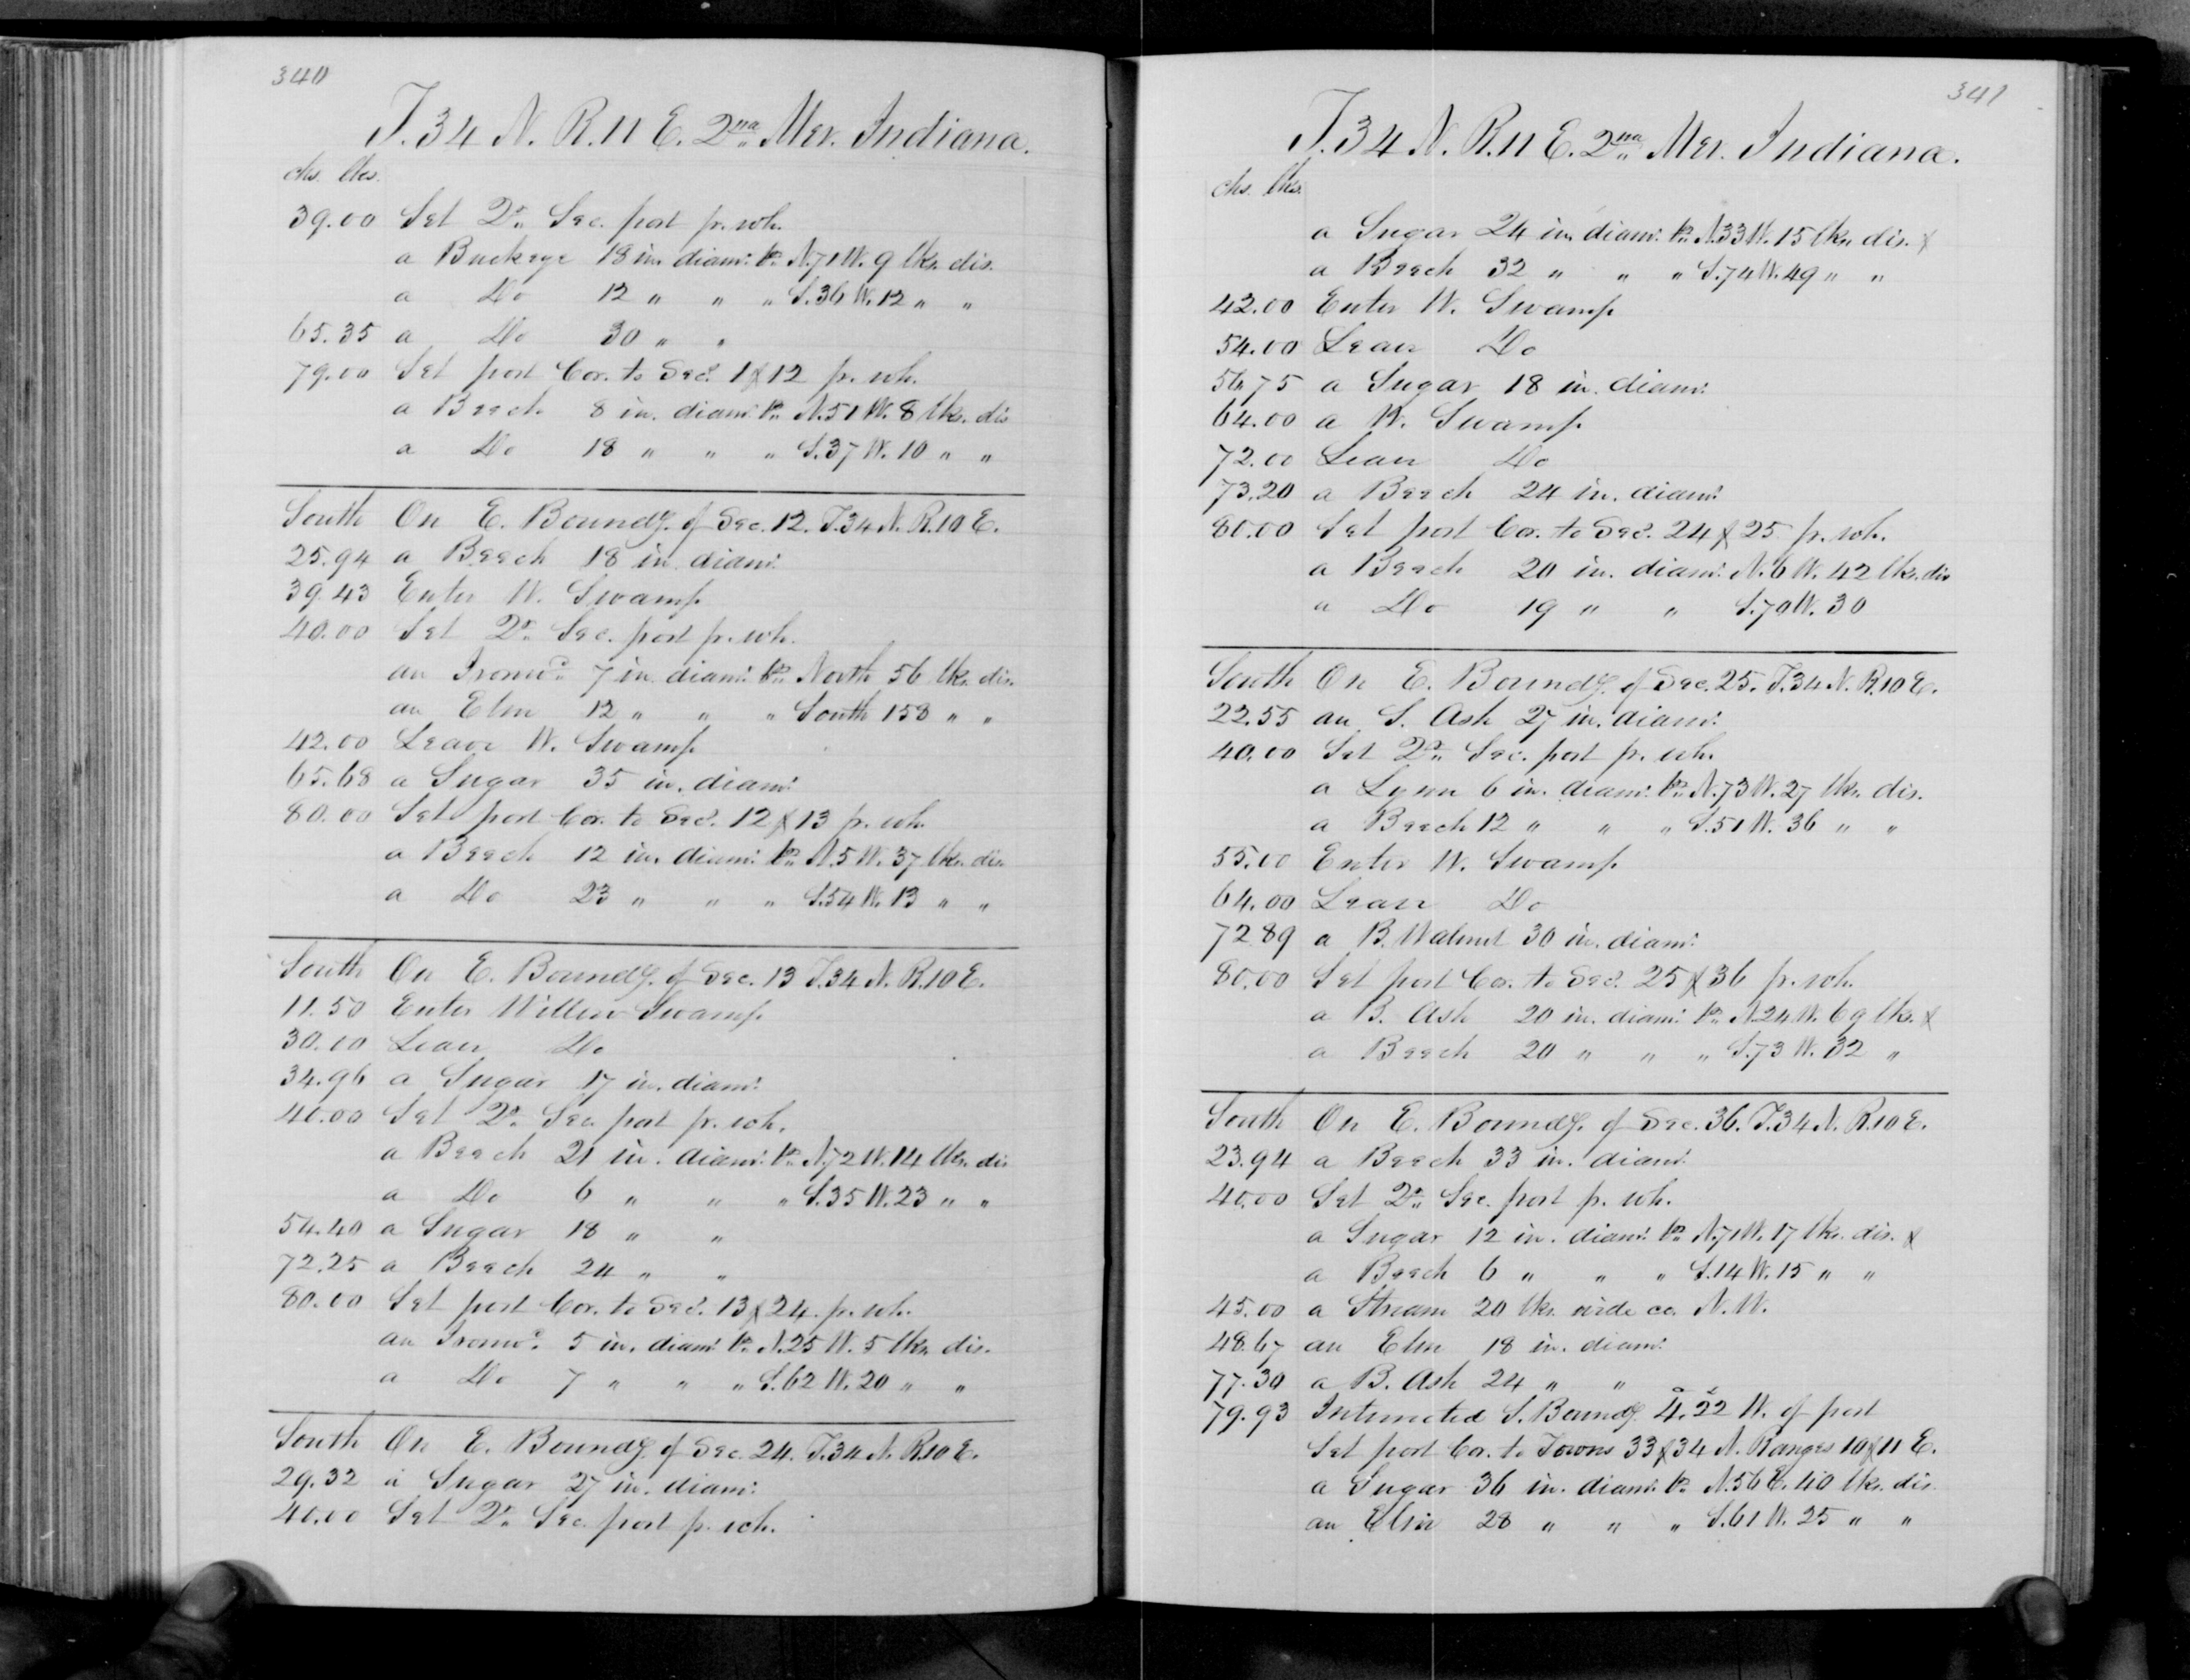 340
T. 34 N. R. 11 E. 2nd Mer. Indiana.
chs. lks.
39.00 Set Qr. Sec. post pr. wh.
a Buckeye 18 in. diam. br. N. 71 W. 9 lks. dis.
a Do 12 " " " S. 36 W. 12 " "
65.35 a Do 30 " "
79.00 Set post Cor. to Secs. 1 & 12 pr. wh.
a Beech 8 in. diam. br. N. 51 W. 8 lks. dis
a Do 18 " " " S. 37 W. 10 " "
South On E. Boundy. of Sec. 12. T. 34 N. R. 10 E.
25.94 a Beech 18 in diam.
39.43 Enter W. Swamp
40.00 Set Qr. Sec. post pr. wh.
an Ironwd. 7 in. diam. br. North 56 lks. dis.
an Elm 12 " " " South 158 " "
42.00 Leave W. Swamp
65.68 a Sugar 35 in. diam.
80.00 Set post Cor. to Secs. 12 & 13 pr. wh.
a Beech 12 in. diam. br. N. 5 W. 37 lks. dis.
a Do 23 " " " S. 54 W. 13 " "
South On E. Boundy. of Sec. 13 T. 34 N. R. 10 E.
11.50 Enter Willow Swamp
30.00 Leave Do
34.96 a Sugar 17 in. diam.
40.00 Set Qr. Sec. post pr. wh.
a Beech 21 in. diam. br. N. 72 W. 14 lks. dis
a Do 6 " " " S. 35 W. 23 " "
54.40 a Sugar 18 " "
72.25 a Beech 24 " "
80.00 Set post Cor. to Secs. 13 & 24. pr. wh.
an Ironwd. 5 in. diam. br. N. 25 W. 5 lks. dis.
a Do 7 " " " S. 62 W. 20 " "
South On E. Boundy. of Sec. 24. T. 34 N. R. 10 E.
29.32 a Sugar 27 in. diam.
40.00 Set Qr. Sec. post pr. wh.
341
T. 34 N. R. 11 E. 2nd Mer. Indiana.
chs. lks.
a Sugar 24 in. diam. br. N. 33 W. 15 lks. dis. &
a Beech 32 " " " S. 74 W. 49 " "
42.00 Enter W. Swamp
54.00 Leave Do
56.75 a Sugar 18 in. diam.
64.00 a W. Swamp
72.00 Leave Do
73.20 a Beech 24 in. diam.
80.00 Set post Cor. to Secs. 24 & 25 pr. wh.
a Beech 20 in. diam. N. 6 W. 42 lks. dis
a Do 19 " " S. 70 W. 30
South On E. Boundy. of Sec. 25. T. 34 N. R. 10 E.
22.55 an S. Ash 27 in. diam.
40.00 Set Qr. Sec. post pr. wh.
a Lynn 6 in. diam. br. N. 73 W. 27 lks. dis.
a Beech 12 " " " S. 51 W. 36 " "
55.00 Enter W. Swamp
64.00 Leave Do
72 89 a B. Walnut 30 in. diam.
80.00 Set post Cor. to Secs. 25 & 36 pr. wh.
a B. Ash 20 in. diam. br. N. 24 W. 69 lks. &
a Beech 20 " " " S. 73 W. 32 "
South On E. Boundy. of Sec. 36. T. 34 N. R. 10 E.
23.94 a Beech 33 in. diam.
40.00 Set Qr. Sec. post pr. wh.
a Sugar 12 in. diam. br. N. 71 W. 17 lks. dis. &
a Beech 6 " " " S. 14 W. 15 " "
45.00 a Stream 20 lks. wide co. N. W.
48.67 an Elm 18 in. diam.
77.30 a B. Ash 24 " "
79.93 Intersected S. Boundy. 4.22 W. of post
Set post Cor. to Towns 33 & 34 N. Ranges 10 & 11 E.
a Sugar 36 in. diam. br. N. 56 E. 40 lks. dis.
an Elm 28 " " " S. 61 W. 25 " "